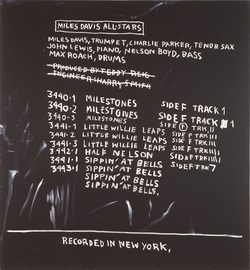 MILES DAVIS ALL·STARS
MILES DAVIS, TRUMPET, CHARLIE PARKER, TENOR SAX
JOHN LEWIS, PIANO, NELSON BOYD, BASS
MAX ROACH, DRUMS
PRODUCED BY TEDDY REIG
ENGINEER: HARRY SMITH
3440·1 MILESTONES SIDE F TRACK 1
3440·2 MILESTONES SIDE F TRACK 1
3440-3 MILESTONES SIDE F TRK II
3441-1 LITTLE WILLIE LEAPS SIDE F
3441-2 LITTLE WILLIE LEAPS SIDE F
3441·3 LITTLE WILLIE LEAPS SIDE F
3442·1 HALF NELSON SIDE F
3441-1 SIPPIN' AT BELLS SIDE F TRK 7
3443-1 SIPPIN' AT BELLS
SIPPIN' AT BELLS
SIPPIN' AT BELLS.
RECORDED IN NEW YORK.